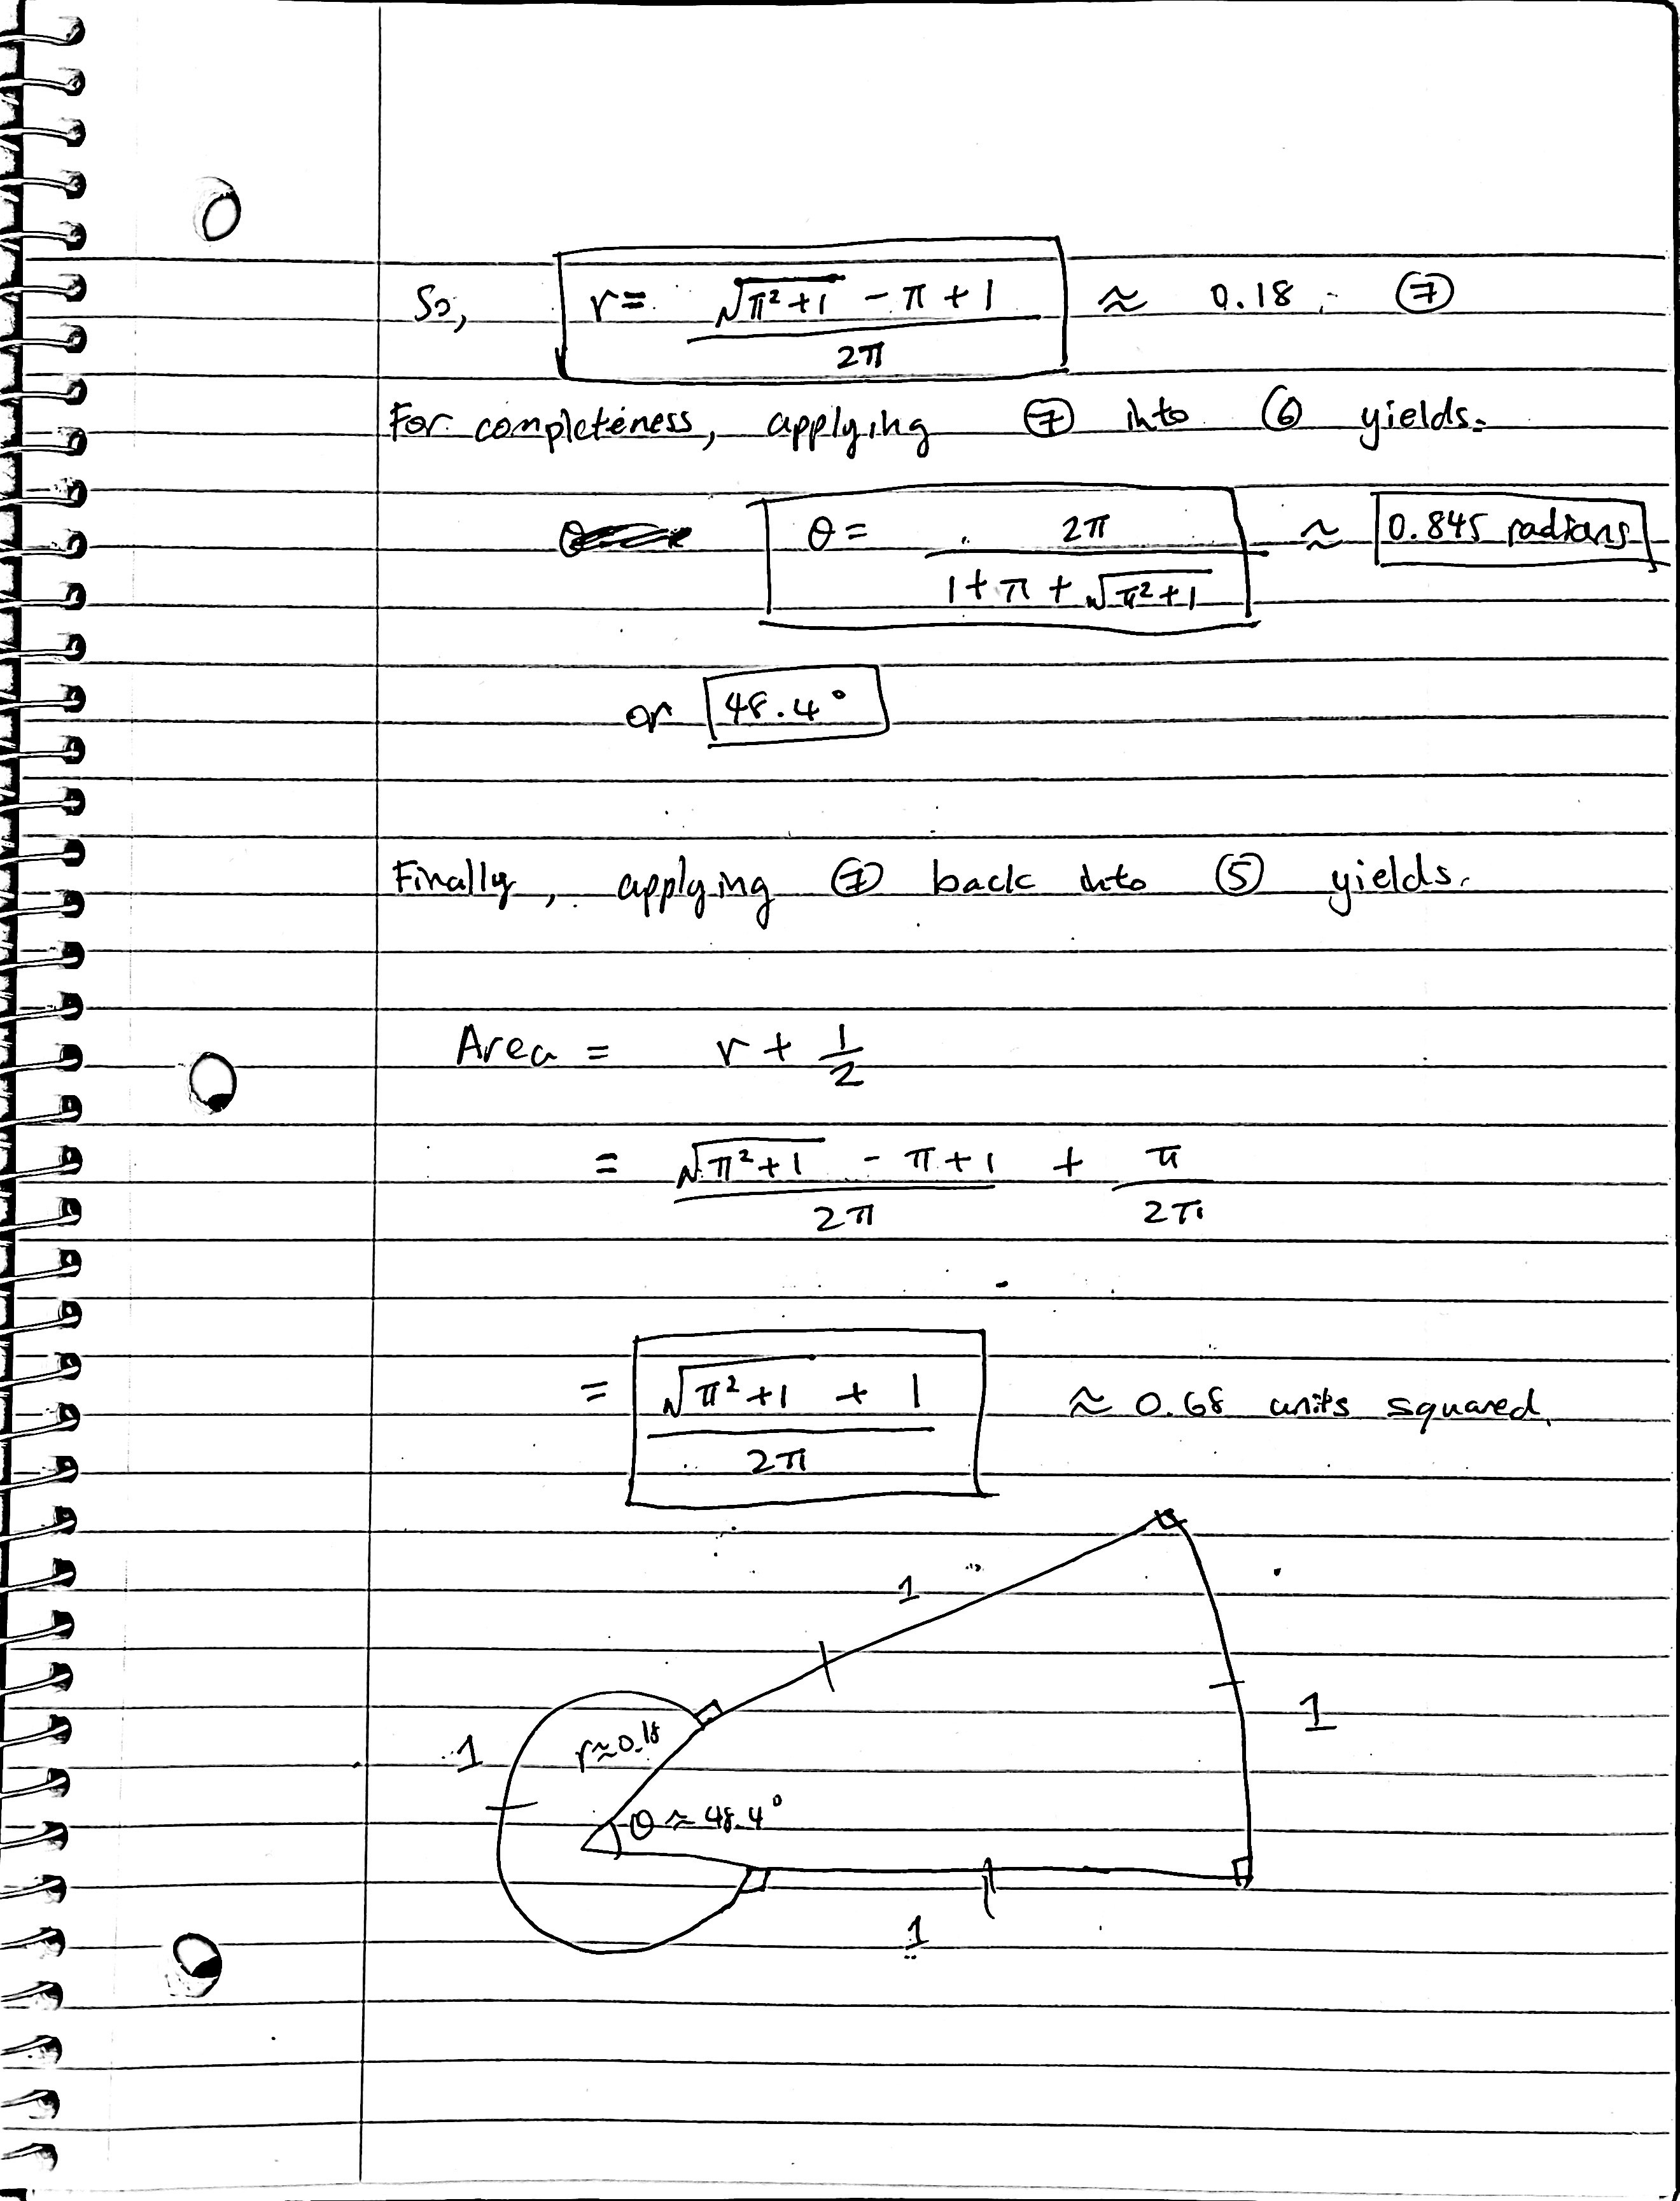 So, r = (√(π²+1) - π + 1) / 2π ≈ 0.18. ⑦
For completeness, applying ⑦ into ⑥ yields.
θ = 2π / (1 + π + √(π²+1)) ≈ 0.845 radians
or 48.4°
Finally, applying ⑦ back into ⑤ yields.
Area = r + 1/2
= (√(π²+1) - π + 1) / 2π + π / 2π
= (√(π²+1) + 1) / 2π ≈ 0.68 units squared.
1
1
1
r≈0.18
θ ≈ 48.4°
1